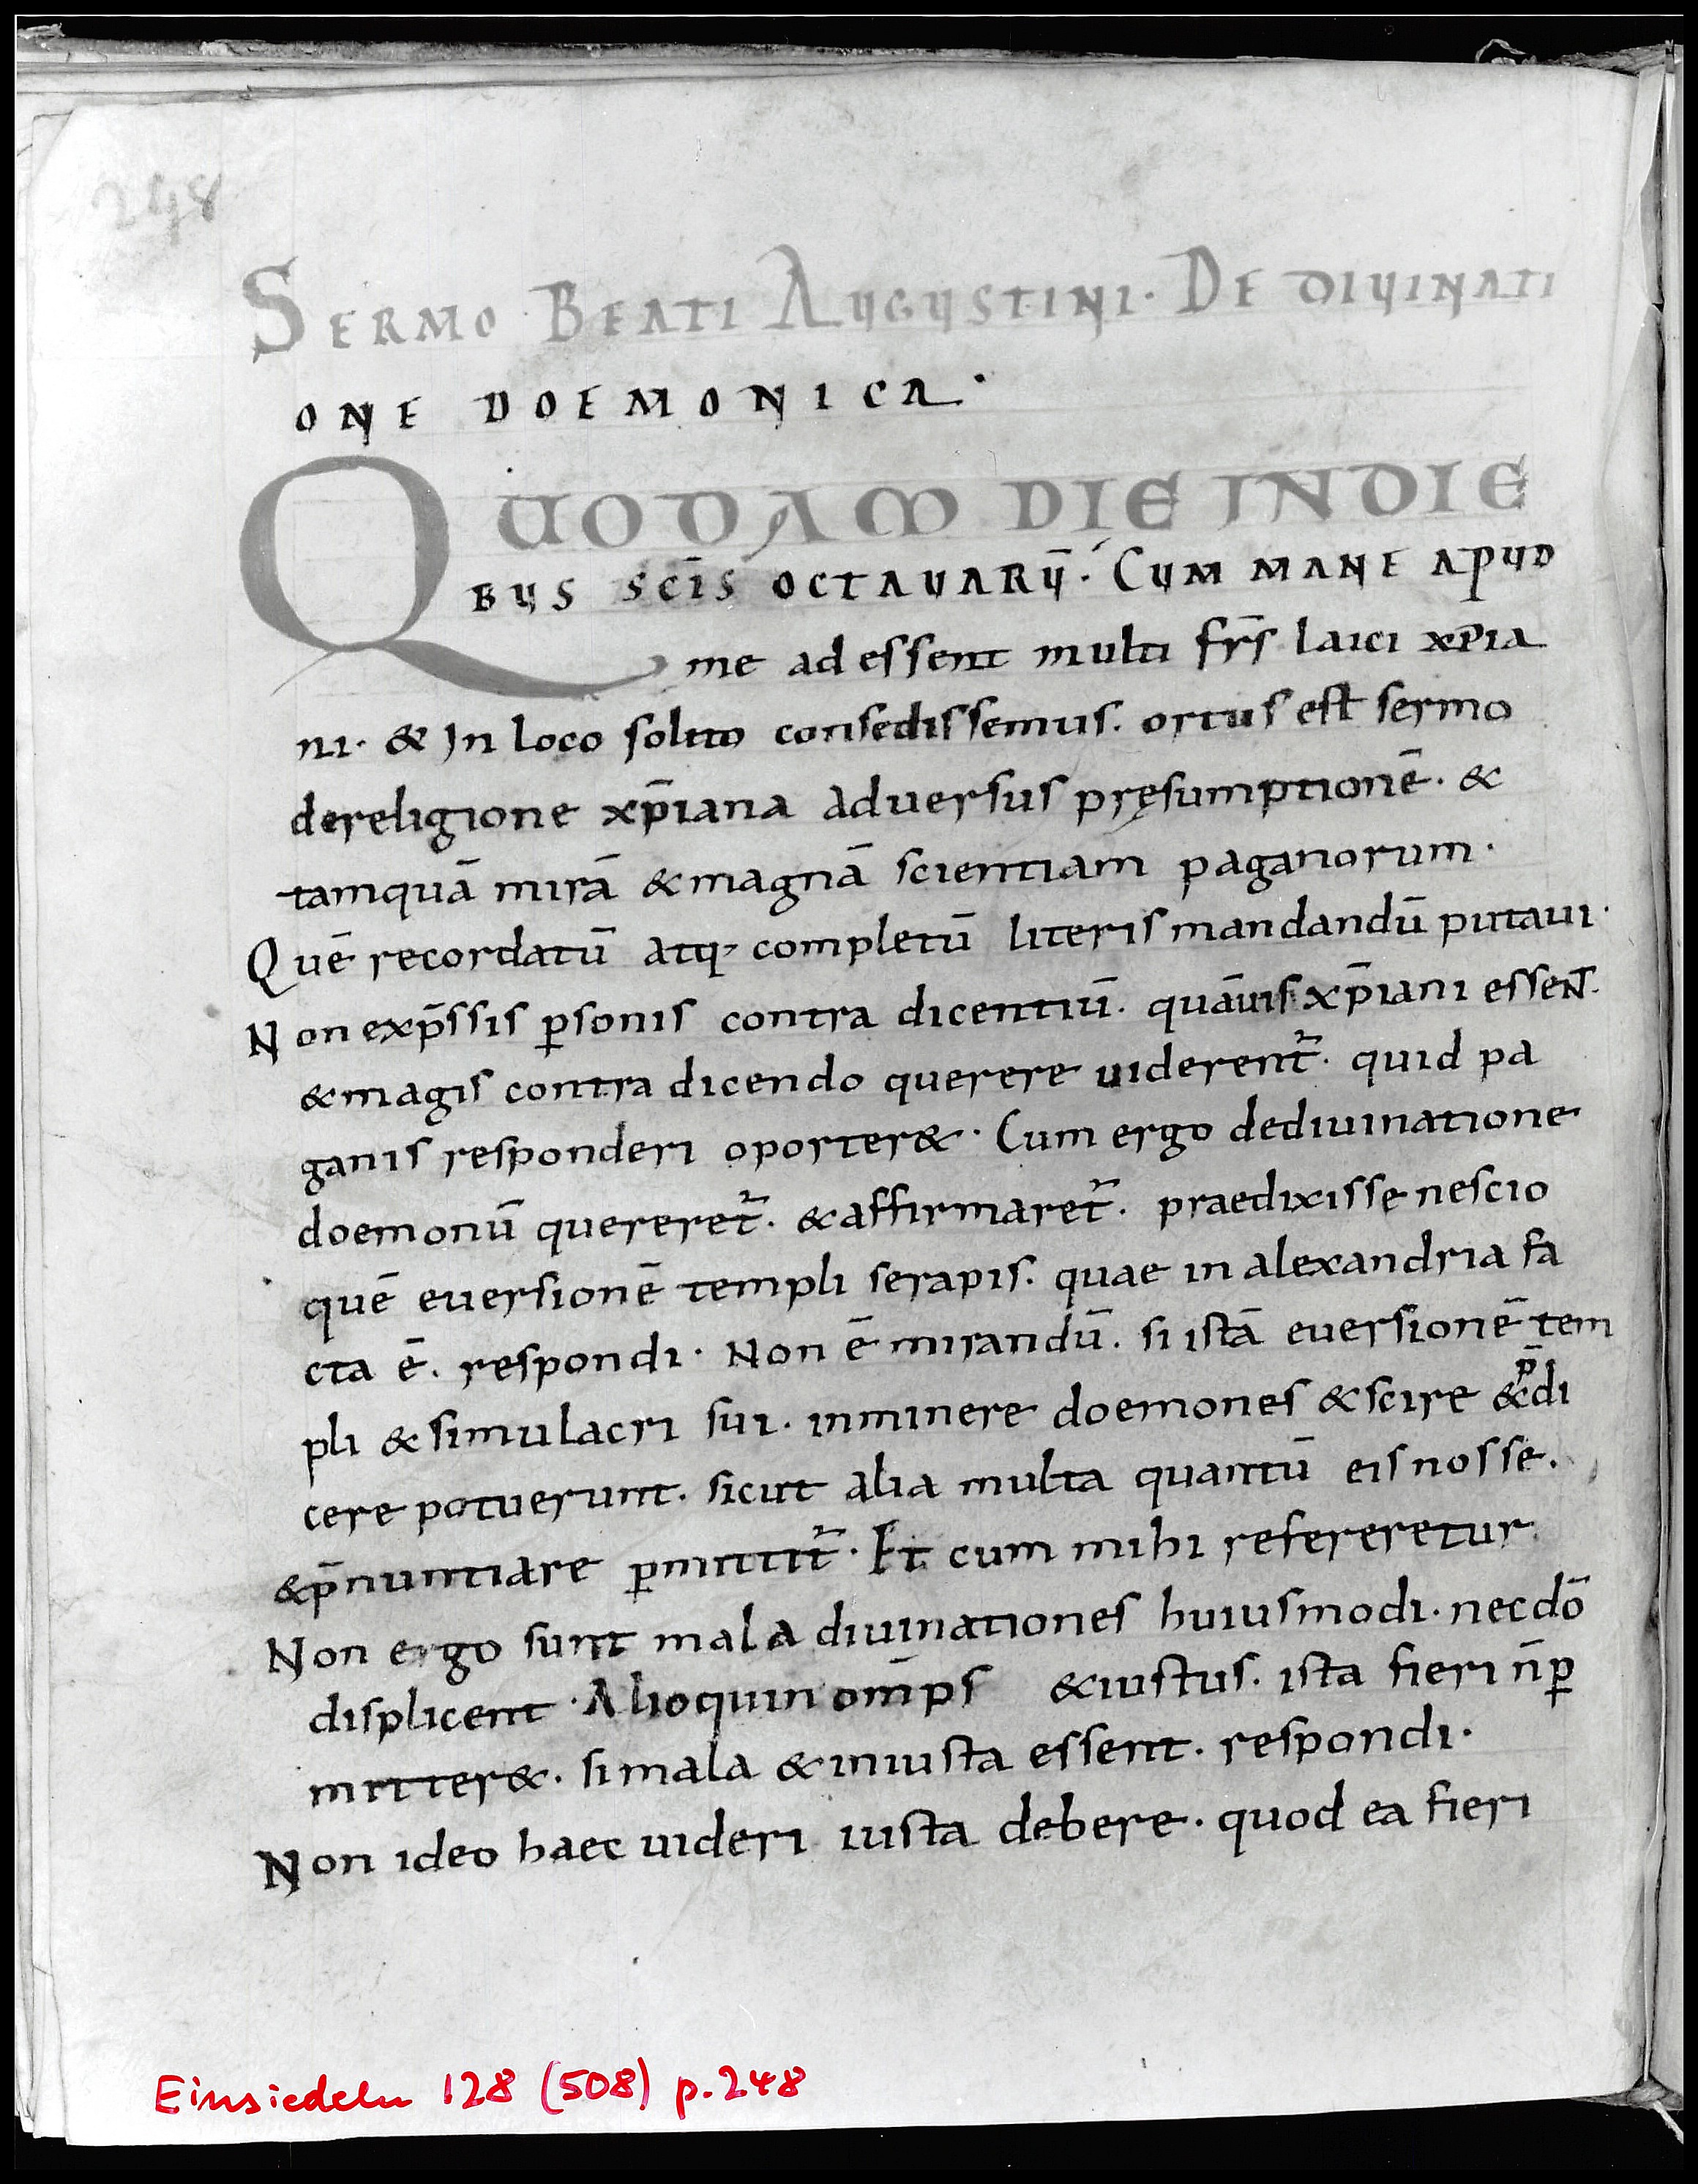 248
SERMO BEATI AUGUSTINI· DE DIUINATI
ONE DOEMONICA·
QUODAM DIE IN DIE
BUS SCĪS OCTAUARŪ·́ CUM MANE APUD
me ad essent multi fr̄s laici xp̄ia
ni· & In loco solito consedissemus. ortus est sermo
dereligione xp̄iana aduersus pręsumptionē· &
tamquā mirā & magnā scientiam paganorum·
Quē recordatū atq; completū literis mandandū putaui·
Non exp̄ssis ꝑsonis contra dicentiū. quāuis xp̄iani essent.
& magis contra dicendo querere uiderent᷑· quid pa
ganis responderi oporter&· Cum ergo dediuinatione
doemonū quereret᷑. & affirmaret᷑. praedixisse nescio
quē euersionē templi serapis. quae in alexandria fa
cta ē. respondi· Non ē mirandū. si istā euersionē tem
pli & simulacri sui. inminere doemones & scire & p̄di
cere potuerunt. sicut alia multa quantū eis nosse.
& p̄nuntiare ꝑmittit᷑· Et cum mihi refereretur
Non ergo sunt mala diuinationes huiusmodi· nec dō
displicent· Alioquin om̄ps & iustus. ista fieri n̄ ꝑ
mitter&. si mala & iniusta essent. respondi·
Non ideo haec uideri iusta debere· quod ea fieri
Einsiedeln 128 (508) p.248